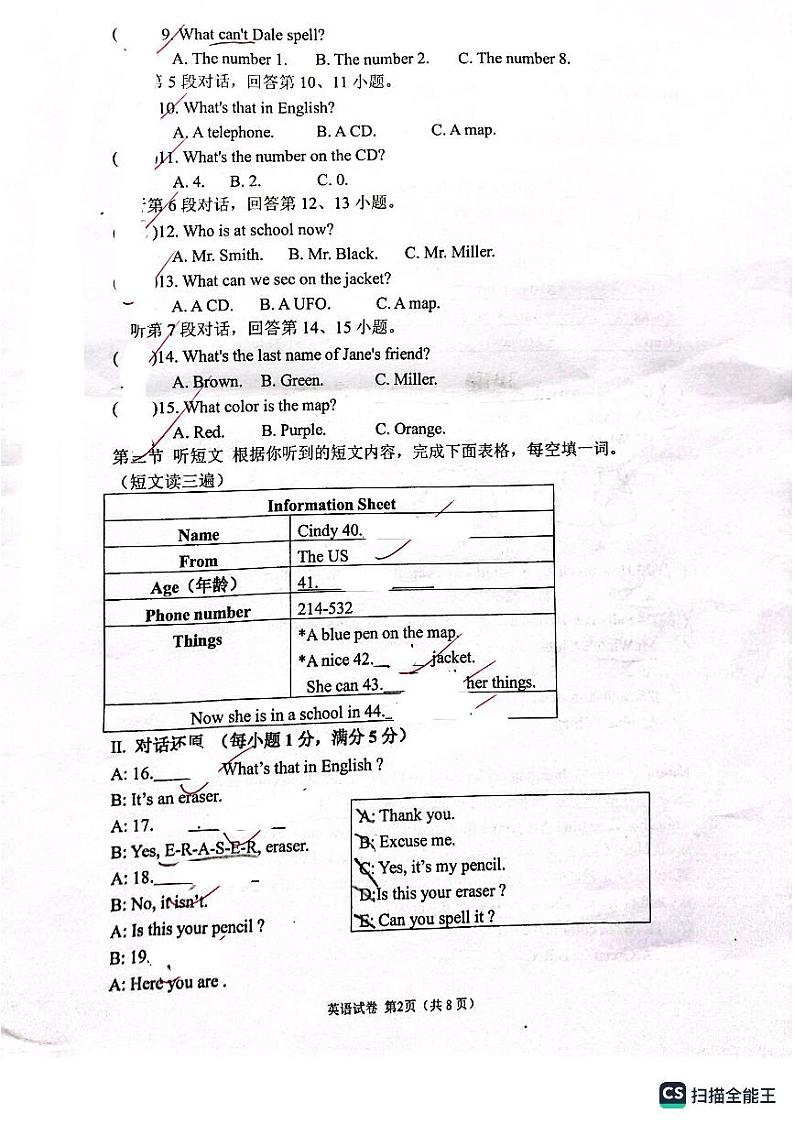 ( 9. What can't Dale spell?
A. The number 1. B. The number 2. C. The number 8.
5 段对话，回答第 10、11 小题。
10. What's that in English?
A. A telephone. B. A CD. C. A map.
( )11. What's the number on the CD?
A. 4. B. 2. C. 0.
第 6 段对话，回答第 12、13 小题。
( )12. Who is at school now?
A. Mr. Smith. B. Mr. Black. C. Mr. Miller.
( )13. What can we see on the jacket?
A. A CD. B. A UFO. C. A map.
听第 7 段对话，回答第 14、15 小题。
( )14. What's the last name of Jane's friend?
A. Brown. B. Green. C. Miller.
( )15. What color is the map?
A. Red. B. Purple. C. Orange.
第三节 听短文 根据你听到的短文内容，完成下面表格，每空填一词。
（短文读三遍）
Information Sheet
Name Cindy 40.
From The US
Age（年龄） 41.
Phone number 214-532
Things *A blue pen on the map.
*A nice 42. jacket.
She can 43. her things.
Now she is in a school in 44.
II. 对话还原 （每小题 1 分，满分 5 分）
A: 16. What's that in English ?
B: It's an eraser.
A: 17.
B: Yes, E-R-A-S-E-R, eraser.
A: 18.
B: No, it isn't.
A: Is this your pencil ?
B: 19.
A: Here you are .
A: Thank you.
B: Excuse me.
C: Yes, it's my pencil.
D: Is this your eraser ?
E: Can you spell it ?
英语试卷 第2页（共 8 页）
CS 扫描全能王